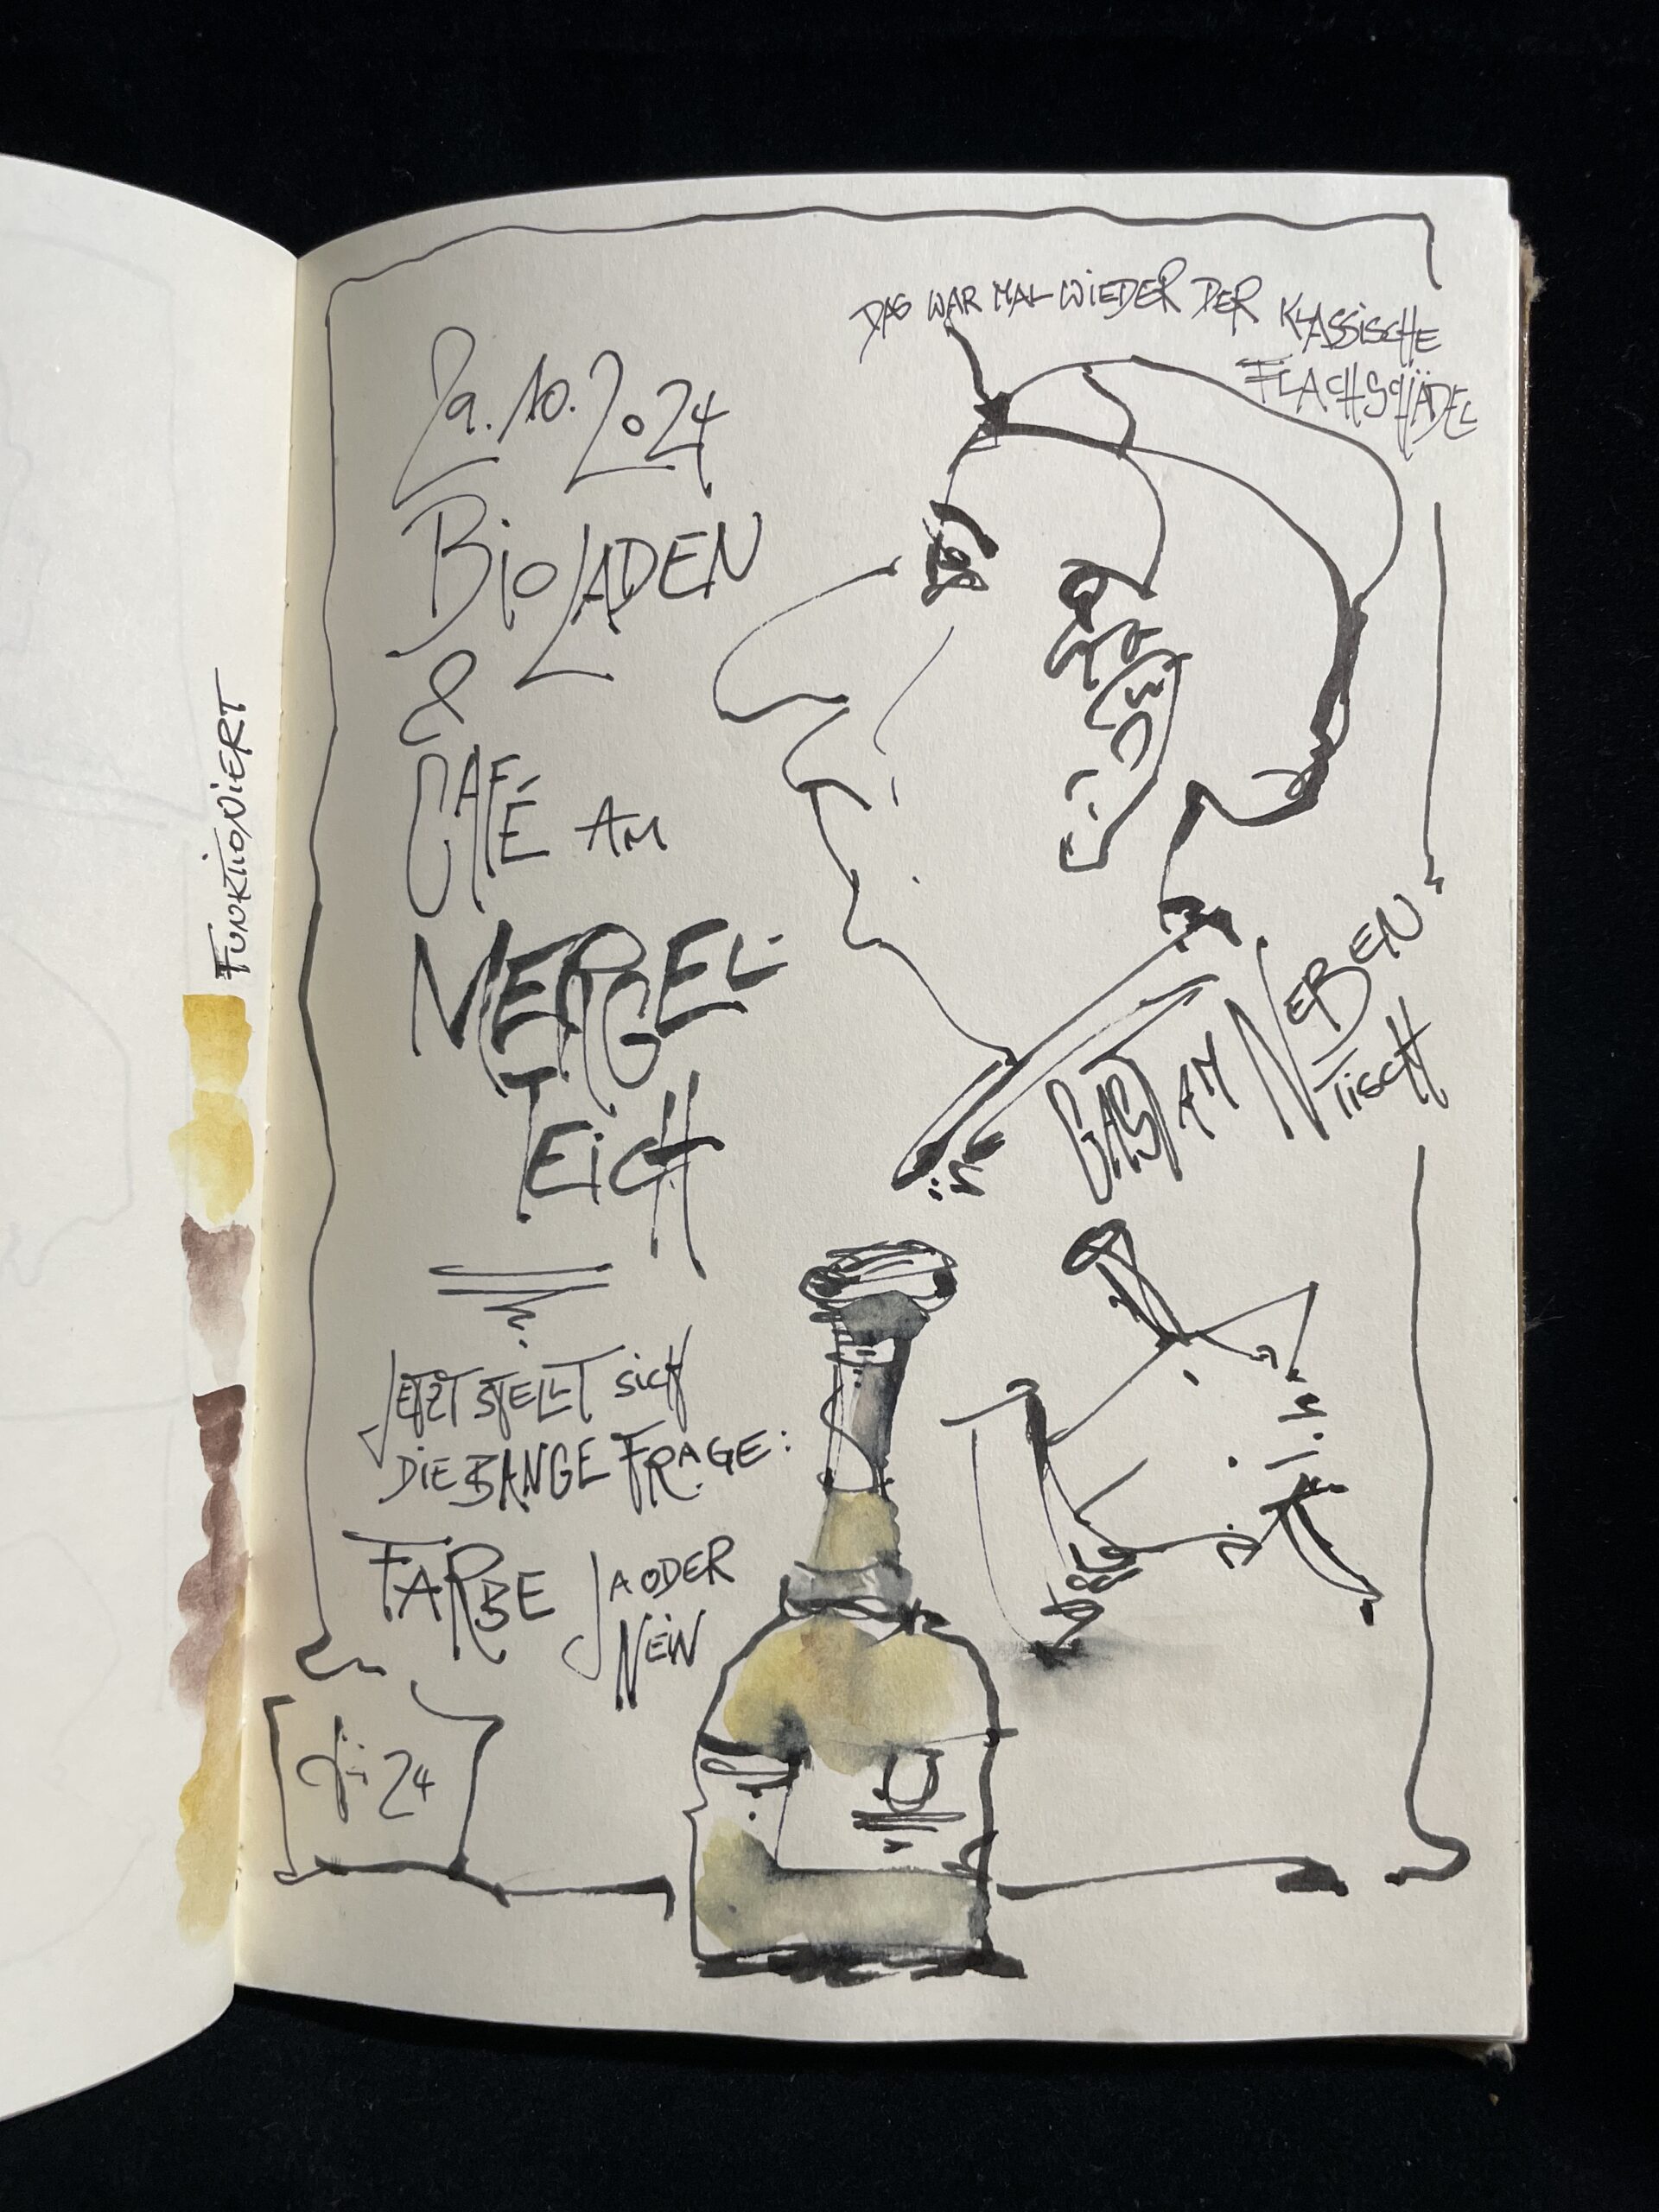 DAS WAR MAL WIEDER DER KLASSISCHE
FLACHSCHÄDEL
10.2024
BIOLADEN
&
CAFÉ AM
MERGEL-
TEICH
GAST AM NEBEN
TISCH
JETZT STELLT SICH
DIE BANGE FRAGE:
FARBE JA ODER
NEIN
24
FUNKTIONIERT